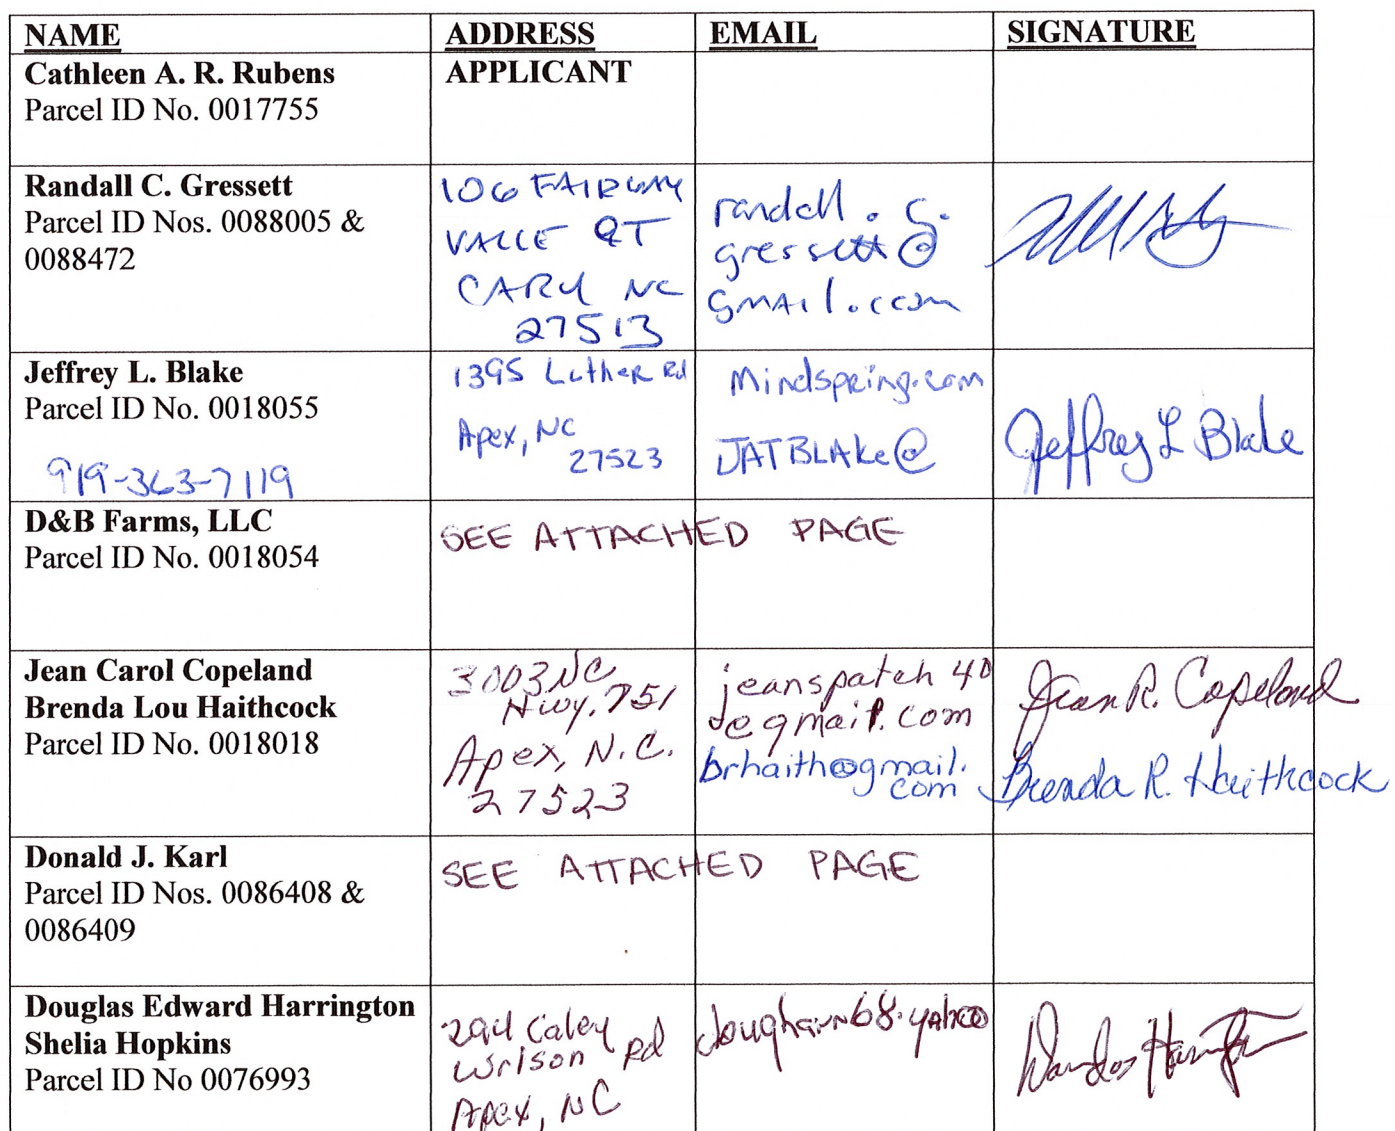 NAME ADDRESS EMAIL SIGNATURE
Cathleen A. R. Rubens
Parcel ID No. 0017755
APPLICANT
Randall C. Gressett
Parcel ID Nos. 0088005 &
0088472
106 FAIRWAY
VALLE CT
CARY NC
27513
randall.c.
gressett@
gmail.com
Jeffrey L. Blake
Parcel ID No. 0018055
919-363-7119
1395 Luther Rd
Apex, NC
27523
Mindspring.com
JATBLAKE@
Jeffrey L Blake
D&B Farms, LLC
Parcel ID No. 0018054
SEE ATTACHED PAGE
Jean Carol Copeland
Brenda Lou Haithcock
Parcel ID No. 0018018
3003 NC
Hwy. 751
Apex, N.C.
27523
jeanspatch 40
@gmail.com
brhaith@gmail.
com
Jean R. Copeland
Brenda R. Haithcock
Donald J. Karl
Parcel ID Nos. 0086408 &
0086409
SEE ATTACHED PAGE
Douglas Edward Harrington
Shelia Hopkins
Parcel ID No 0076993
294 Caley
Wilson Rd
Apex, NC
dougharr68.yahoo